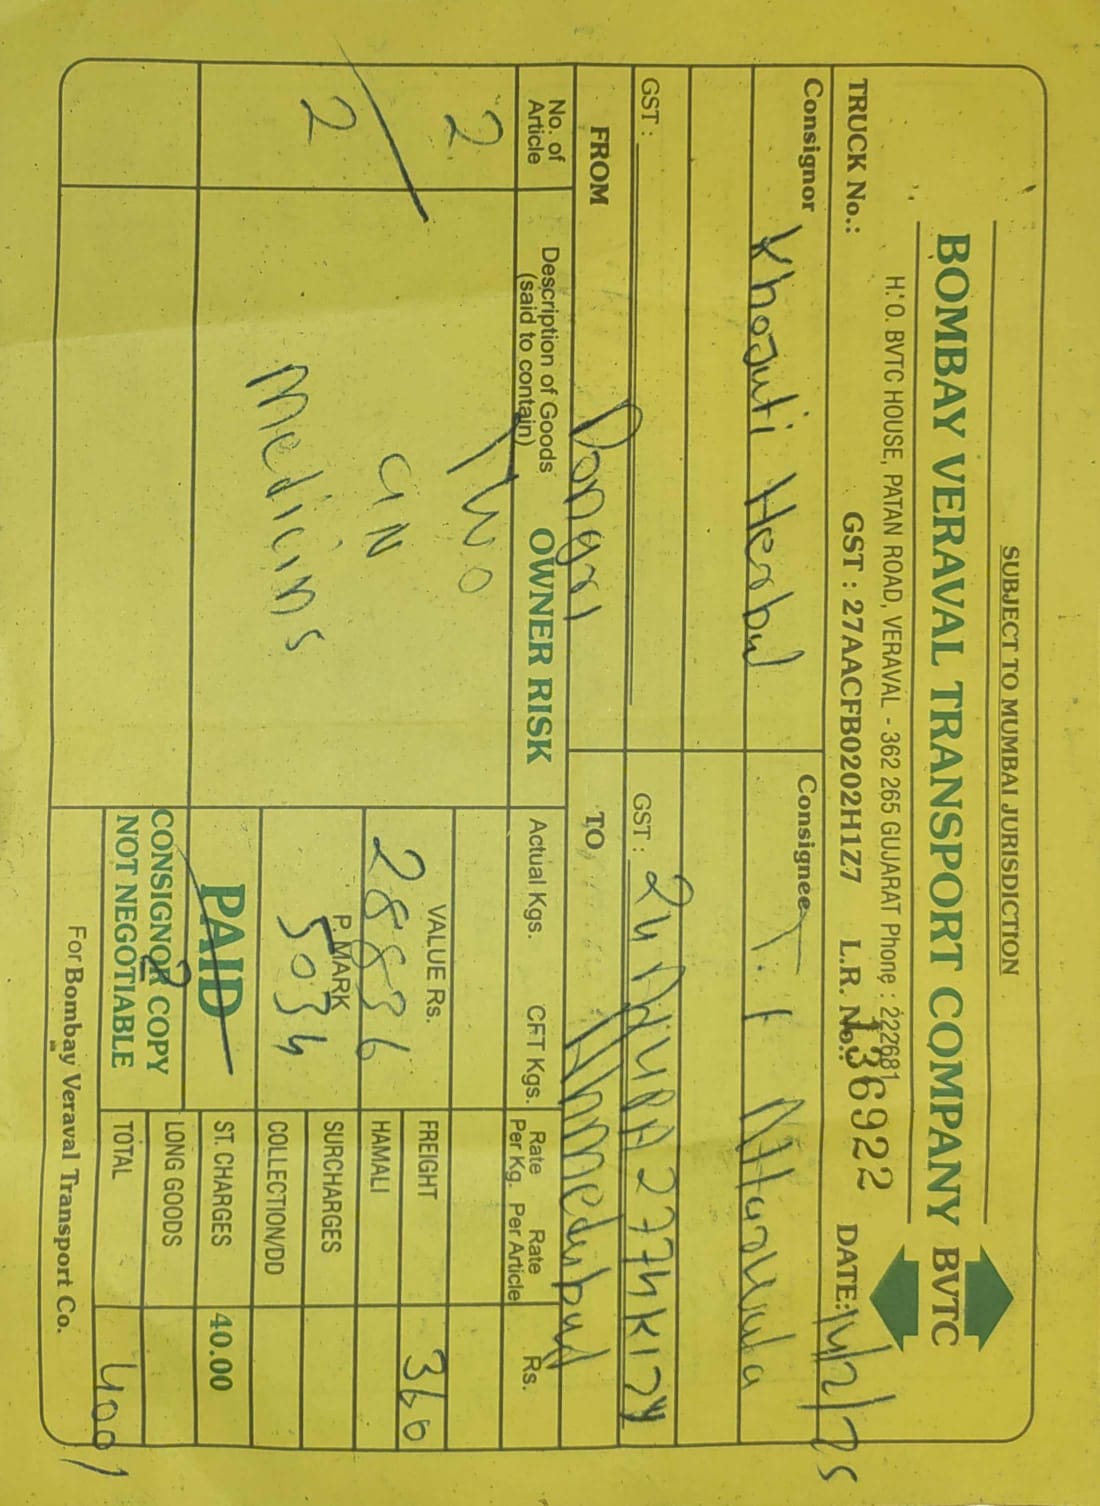 SUBJECT TO MUMBAI JURISDICTION
BOMBAY VERAVAL TRANSPORT COMPANY BVTC
H. O. BVTC HOUSE, PATAN ROAD, VERAVAL - 362 265 GUJARAT Phone : 222681
TRUCK No.: GST : 27AACFB0202H1Z7 L.R. No.: 136922 DATE: 14/2/25
Consignor Khojati Herbal
Consignee T. F
GST :
GST :
FROM Dongri
TO Ahmedabad
No. of Article
Description of Goods (said to contain)
OWNER RISK
Actual Kgs. CFT Kgs. Rate Per Kg. Rate Per Article Rs.
2 Two
GN
2 Medicins
VALUE Rs.
28836
P. MARK
5034
PAID
CONSIGNOR COPY
NOT NEGOTIABLE
FREIGHT 360
HAMALI
SURCHARGES
COLLECTION/DD
ST. CHARGES 40.00
LONG GOODS
TOTAL 400/
For Bombay Veraval Transport Co.